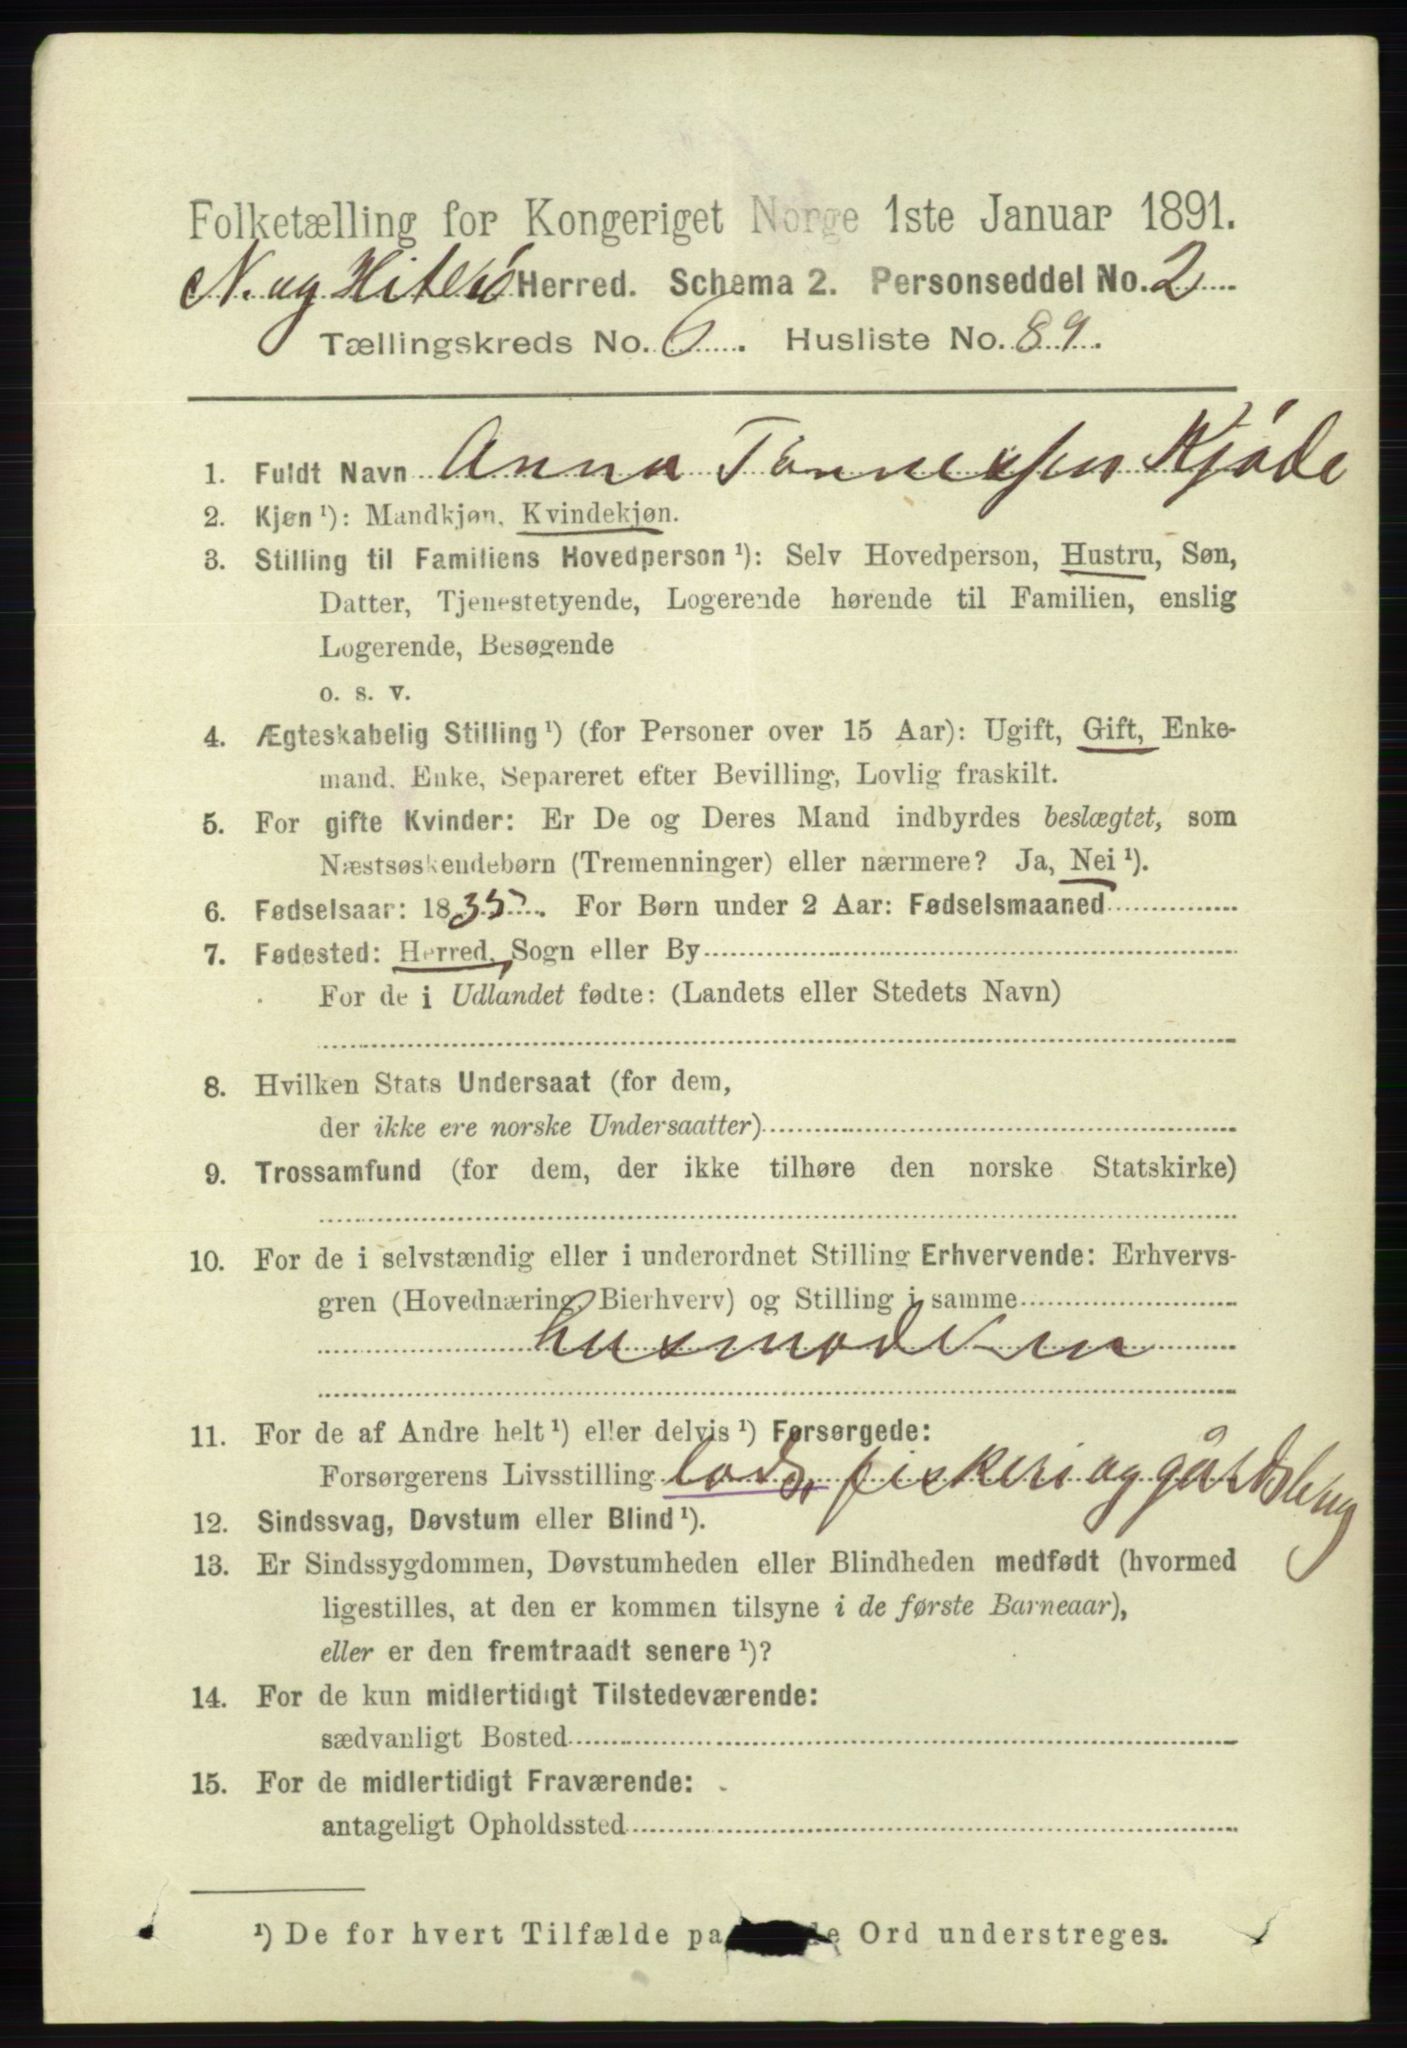 Folketælling for Kongeriget Norge 1ste Januar 1891.
N. og Hiterö Herred. Schema 2. Personseddel No. 2
Tællingskreds No. 6. Husliste No. 89.
1. Fuldt Navn Anna Tönnessen Kjöde
2. Kjøn ¹): Mandkjøn, Kvindekjøn.
3. Stilling til Familiens Hovedperson ¹): Selv Hovedperson, Hustru, Søn,
Datter, Tjenestetyende, Logerende hørende til Familien, enslig
Logerende, Besøgende
o. s. v.
4. Ægteskabelig Stilling ¹) (for Personer over 15 Aar): Ugift, Gift, Enke-
mand, Enke, Separeret efter Bevilling, Lovlig fraskilt.
5. For gifte Kvinder: Er De og Deres Mand indbyrdes beslægtet, som
Næstsøskendebørn (Tremenninger) eller nærmere? Ja, Nei ¹).
6. Fødselsaar: 1835. For Børn under 2 Aar: Fødselsmaaned
7. Fødested: Herred, Sogn eller By
For de i Udlandet fødte: (Landets eller Stedets Navn)
8. Hvilken Stats Undersaat (for dem,
der ikke ere norske Undersaatter)
9. Trossamfund (for dem, der ikke tilhøre den norske Statskirke)
10. For de i selvstændig eller i underordnet Stilling Erhvervende: Erhvervs-
gren (Hovednæring, Bierhverv) og Stilling i samme
husmoderen
11. For de af Andre helt ¹) eller delvis ¹) Forsørgede:
Forsørgerens Livsstilling lods, fiskeri og gårdsbrug
12. Sindssvag, Døvstum eller Blind ¹).
13. Er Sindssygdommen, Døvstumheden eller Blindheden medfødt (hvormed
ligestilles, at den er kommen tilsyne i de første Barneaar),
eller er den fremtraadt senere ¹)?
14. For de kun midlertidigt Tilstedeværende:
sædvanligt Bosted
15. For de midlertidigt Fraværende:
antageligt Opholdssted
¹) De for hvert Tilfælde pa de Ord understreges.